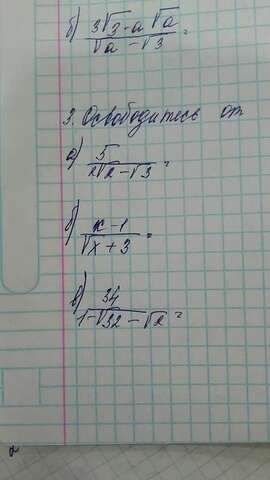 б) (3√3-a√a)/(√a-√3) =
3. Освободитесь от
а) 5/(2√2-√3) =
б) (x-1)/(√x+3) =
в) 34/(1-√32-√2) =